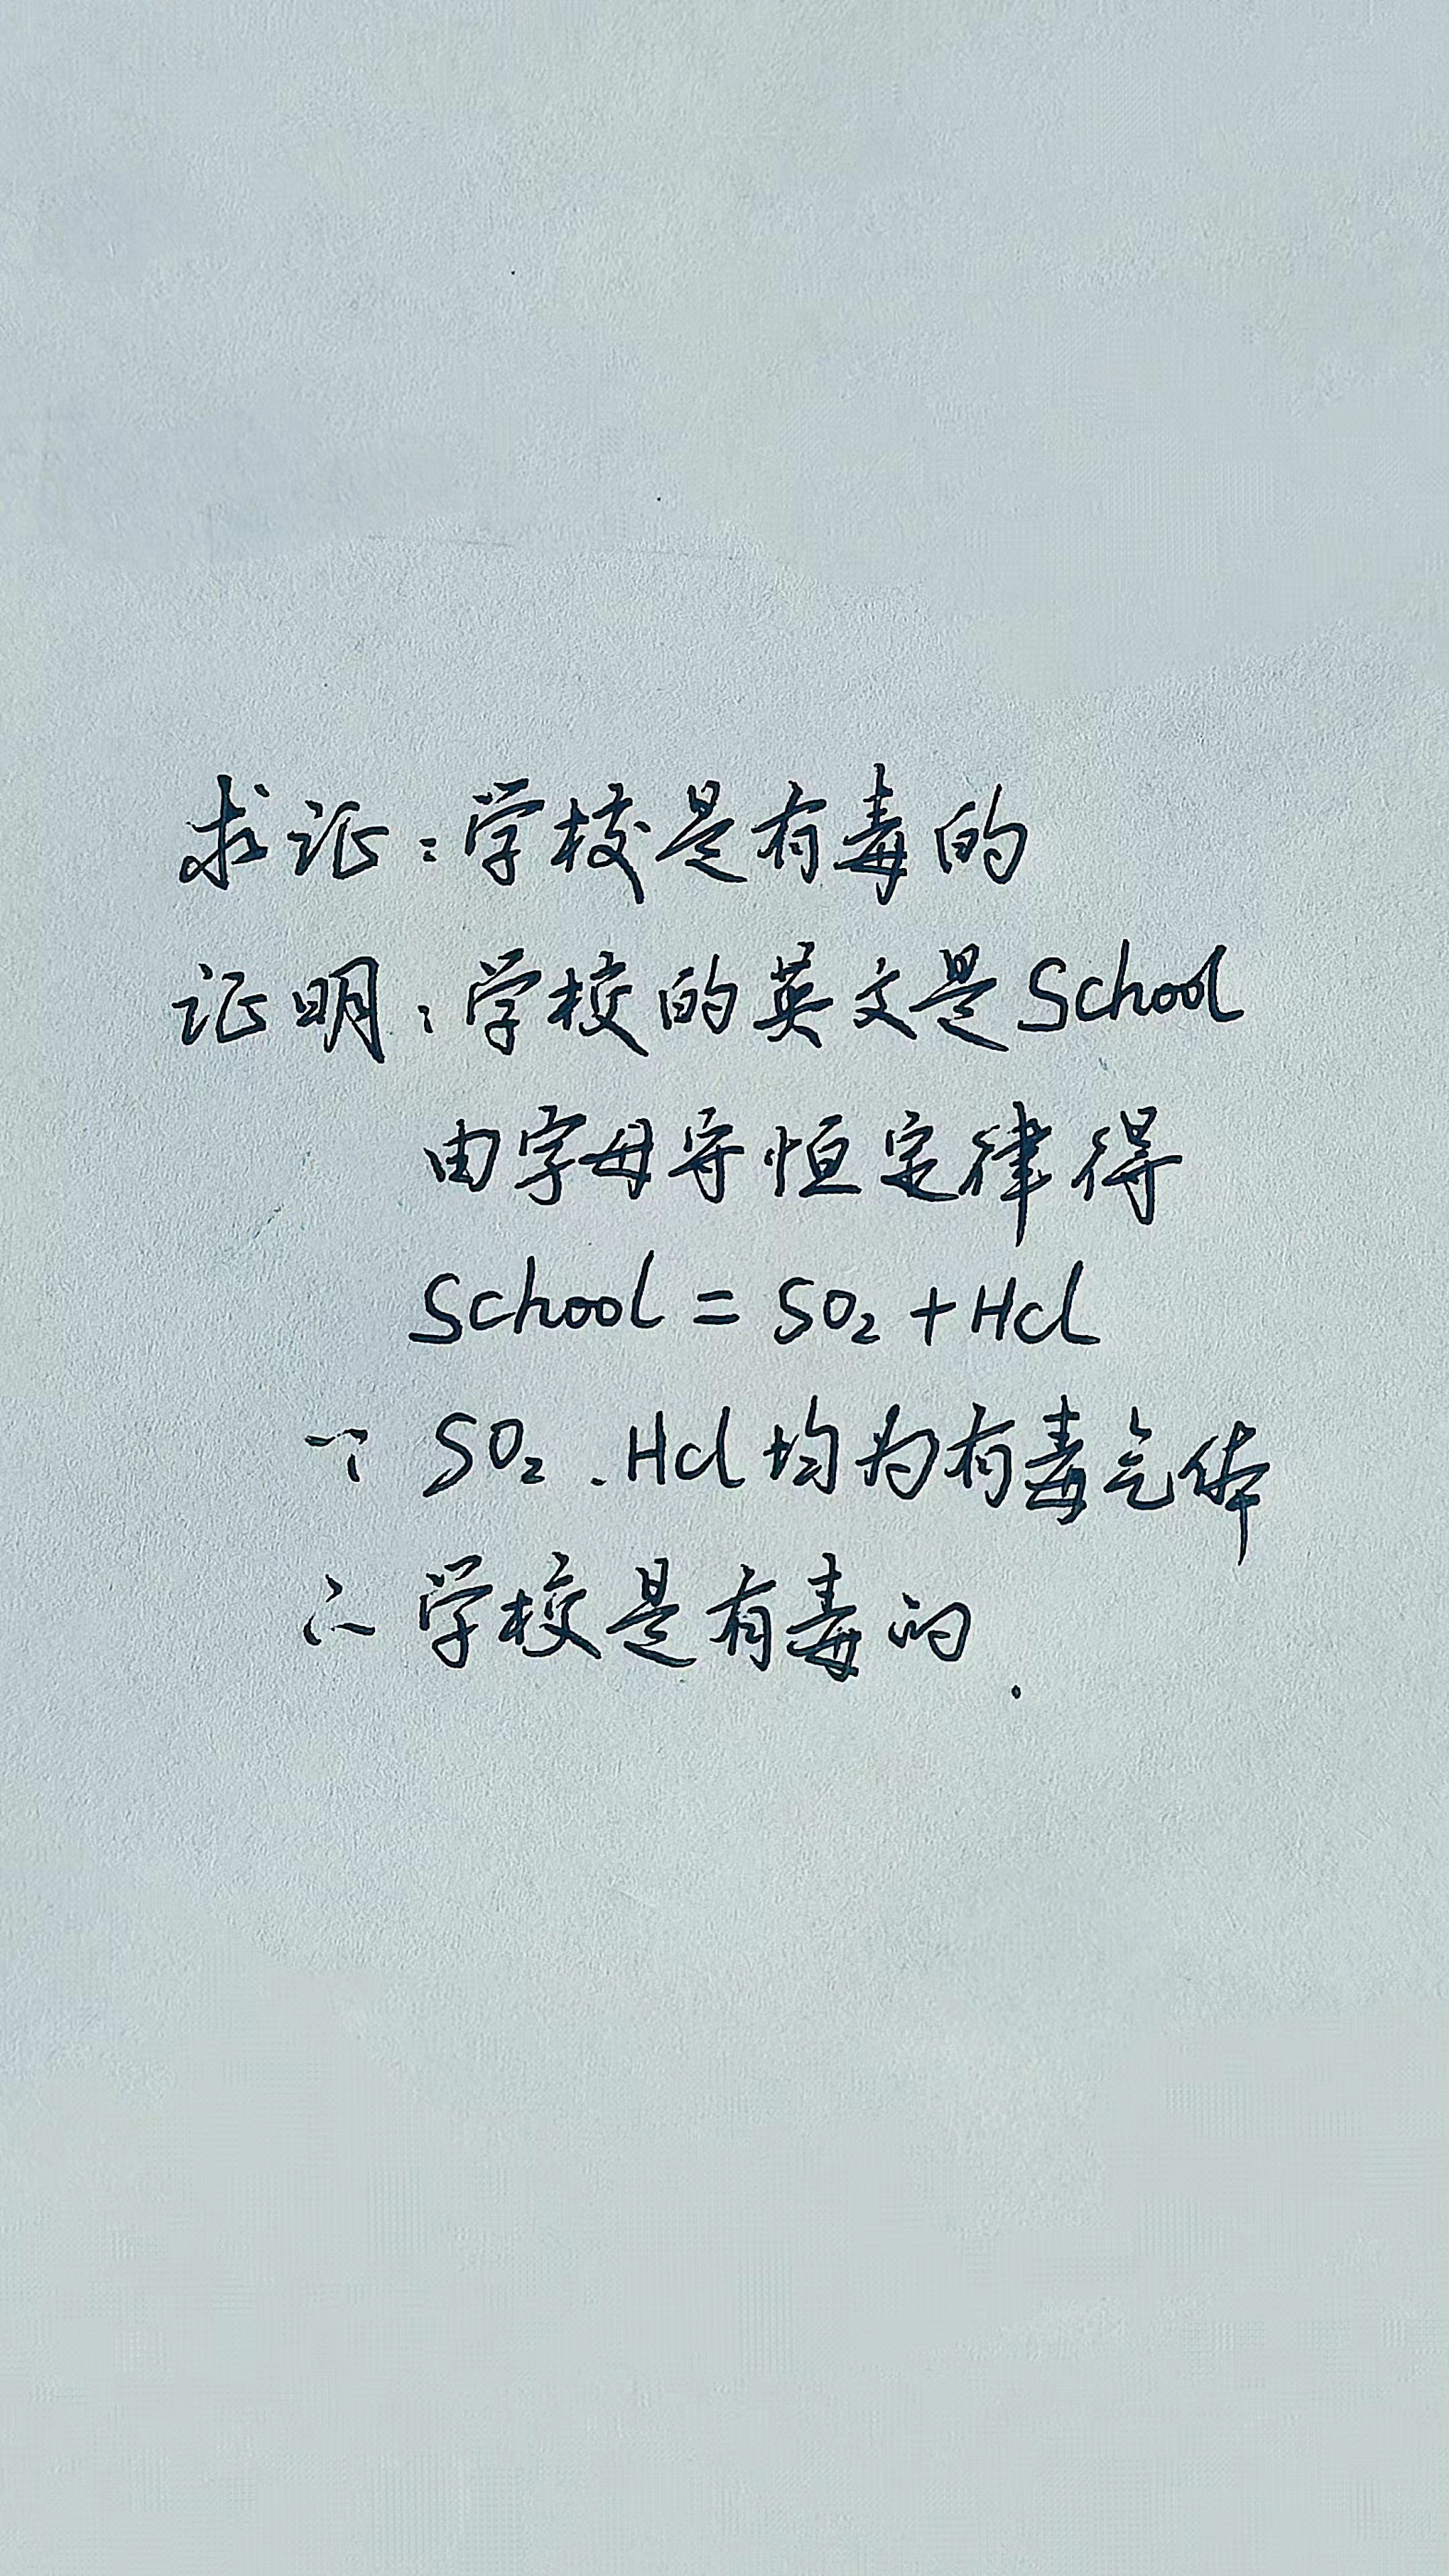 求证：学校是有毒的
证明：学校的英文是School
由字母守恒定律得
School = SO₂ + Hcl
∵ SO₂、Hcl均为有毒气体
∴ 学校是有毒的.